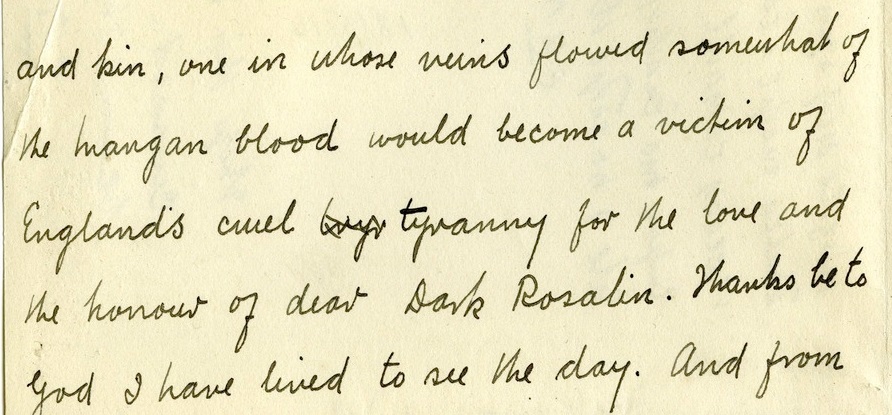 and kin, one in whose veins flowed somewhat of
the Mangan blood would become a victim of
England's cruel tyranny for the love and
the honour of dear Dark Rosalin. Thanks be to
God I have lived to see the day. And from